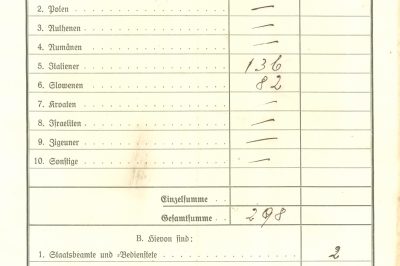 2. Polen —
3. Ruthenen —
4. Rumänen —
5. Italiener 136
6. Slowenen 82
7. Kroaten —
8. Israeliten —
9. Zigeuner —
10. Sonstige —
Einzelsumme
Gesamtsumme 298
B. Hievon sind:
1. Staatsbeamte und =Bedienstete 2